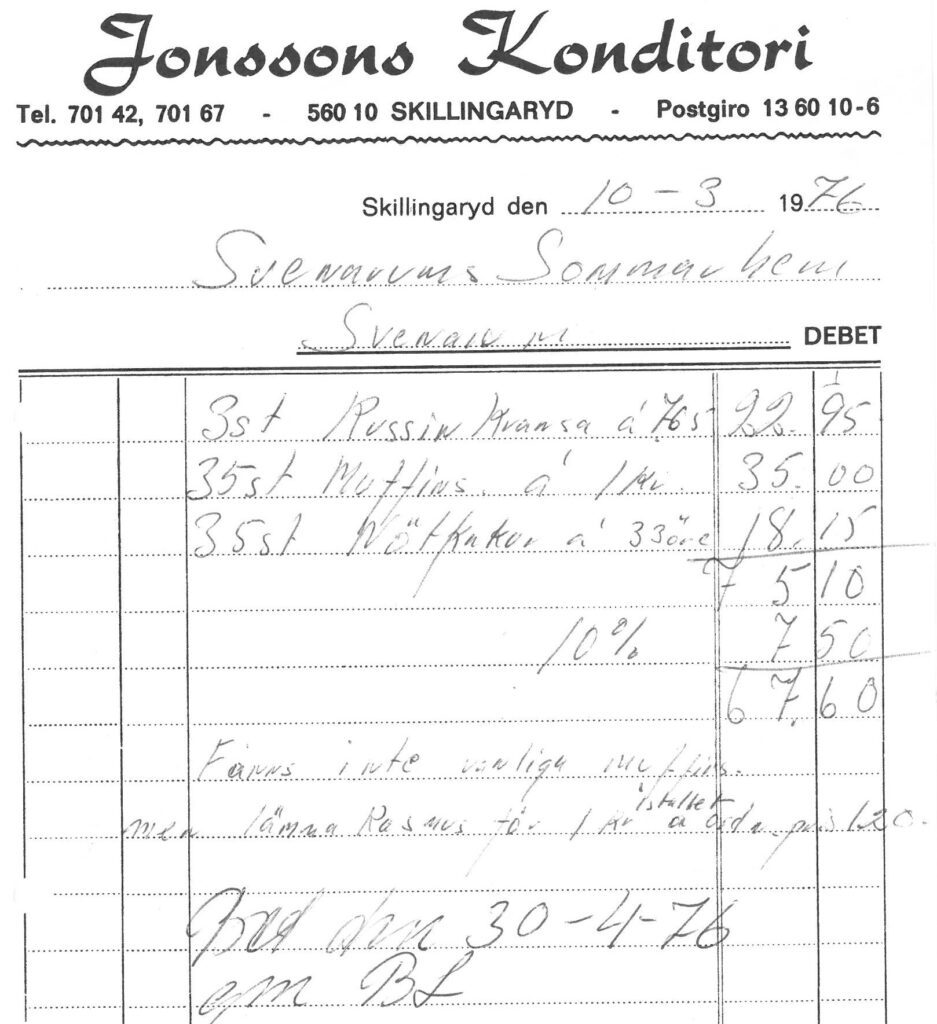 Jonssons Konditori
Tel. 701 42, 701 67 - 560 10 SKILLINGARYD - Postgiro 13 60 10-6
Skillingaryd den 10 - 3 1976
Svenarums Sommarhem
Svenarum DEBET
3st Russin Kransa á 765 22.95
35st Muffins. á 1 kr. 35.00
35st Nötkakor á 33öre 18.15
75 10
10% 7 50
67.60
Fanns inte vanliga muffins.
istället
men lämna Rasmus för 1 kr á ord. pris 1.20.
Bet den 30-4-76
BL